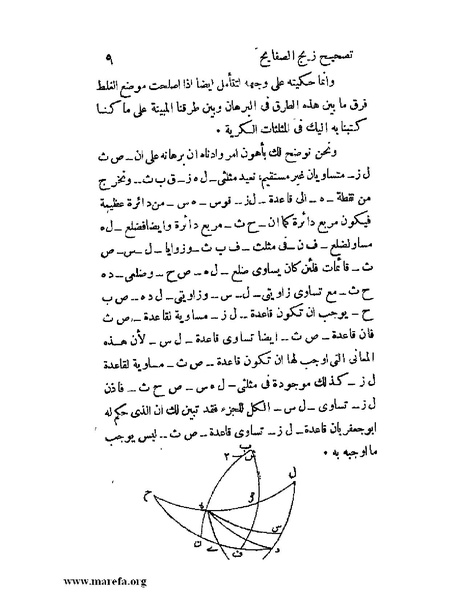 تصحيح زيج الصفايح ٩
وانما حكيته على وجهه لتتأمل ايضا اذا اصلحت موضع الغلط
فرق ما بين هذه الطرق فى البرهان وبين طرقنا المبينة على ما كنا
كتبنا به اليك فى المثلثات الكرية ٠
ونحن نوضح لك بأهون امر وادناه ان برهانه على ان ـ ص ث
ل ز ـ متساويان غير مستقيم، نعيد مثلثى ـ ل ه ز ـ ق ب ث ـ ونخرج
من نقطة ـ ه ـ الى قاعدة ـ ل ز ـ قوس ـ ه س ـ من دائرة عظيمة
فيكون مربع دائرة كما ان ـ ح ث ـ مربع دائرة وايضا فضلع ـ ل ه
مساو لضلع ـ ف ن ـ فى مثلث ـ ف ب ث ـ وزوايا ـ ل ـ س ـ ص
ث ـ قائمات فلئن كان يساوى ضلع ـ ل ه ـ ص ح ـ وضلعى ـ د ه
ح ث ـ مع تساوى زاويتى ـ ل ـ س ـ وزاويتى ـ ل د ه ـ ص ب
ح ـ يوجب ان تكون قاعدة ـ ل ز ـ مساوية لقاعدة ـ ص ث
فان قاعدة ـ ص ث ـ ايضا تساوى قاعدة ـ ل س ـ لأن هذه
المعانى التى اوجب لها ان تكون قاعدة ـ ص ث ـ مساوية لقاعدة
ل ز ـ كذلك موجودة فى مثلثى ـ ل ه س ـ ص ح ث ـ فاذن
ل ز ـ تساوى ـ ل س ـ الكل للجزء فقد تبين لك ان الذى حكم له
ابو جعفر بان قاعدة ـ ل ز ـ تساوى قاعدة ـ ص ث ـ ليس يوجب
ما اوجبه به ٠
ب
ل
ح
ه
س
ن
ف
د
www.marefa.org